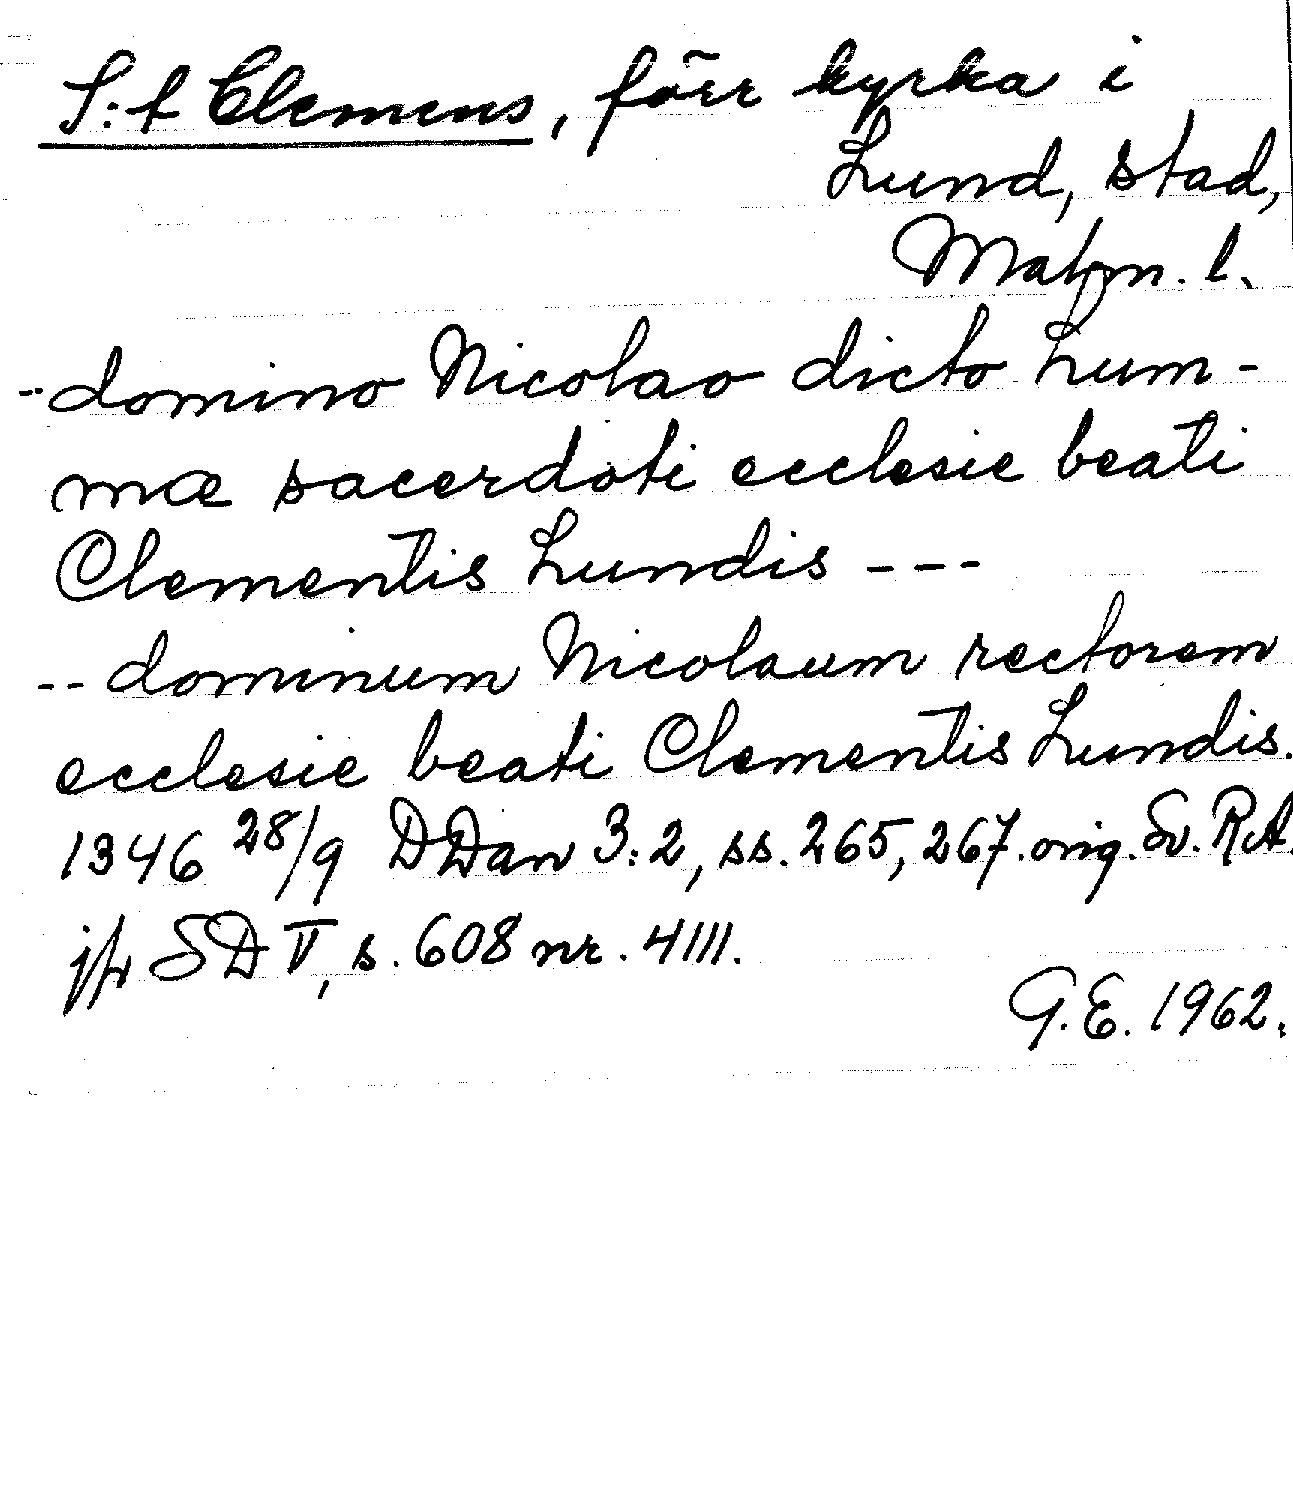 S:t Clemens, förr kyrka i
Lund, stad,
Malm. l.
-- domino Nicolao dicto Lum-
mæ sacerdoti ecclesie beati
Clementis Lundis ---
-- dominum Nicolaum rectorem
ecclesie beati Clementis Lundis.
1346 28/9 DDan 3:2, ss. 265, 267. orig. Sv. RA.
jfr SD V, s. 608 nr. 4111.
G.E. 1962.